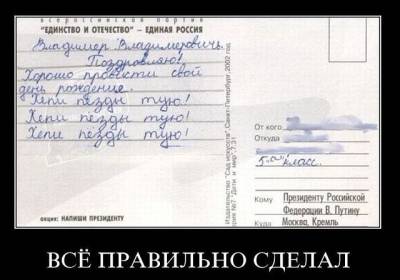 всероссийская партия
"ЕДИНСТВО И ОТЕЧЕСТВО" – ЕДИНАЯ РОССИЯ
Владимер Владимерович
Поздровляю!
Хорошо провести свой
день рождение.
Хепи пёзды тую!
Хепи пёзды тую!
Хепи пёзды тую!
акция: НАПИШИ ПРЕЗИДЕНТУ
Издательство "Сад искусств", Санкт-Петербург, 2002 год.
Серия №7 "Дети и мир", 7.31
От кого
Откуда
5-"а" класс.
Кому Президенту Российской
Федерации В. Путину
Куда Москва, Кремль
ВСЁ ПРАВИЛЬНО СДЕЛАЛ